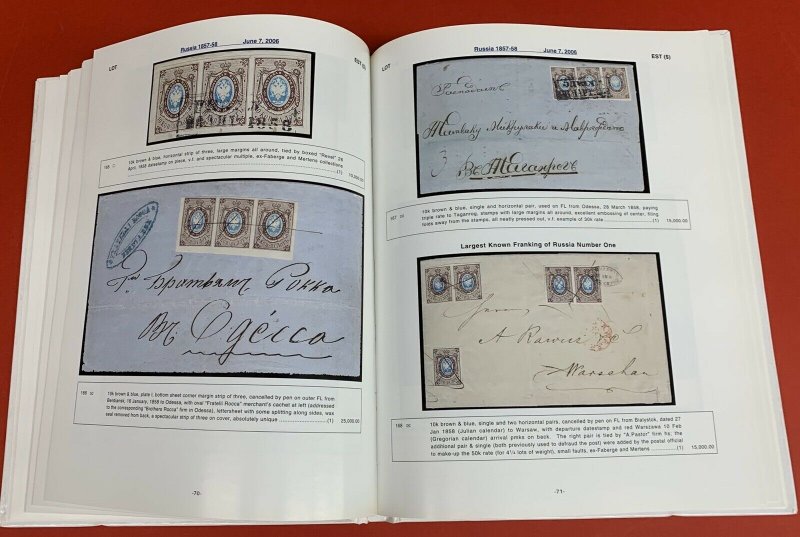 Russia 1857-58 June 7, 2006
LOT EST ($)
165 10k brown & blue, horizontal strip of three, large margins all around, tied by boxed "Revel" 26
April, 1858 datestamp on piece, v.f. and spectacular multiple, ex-Faberge and Mertens collections
(1) 10,000.00
Въ Одесса
166 10k brown & blue, plate I, bottom sheet corner margin strip of three, cancelled by pen on outer FL from
Berdiansk, 18 January, 1858 to Odessa, with oval "Fratelli Rocca" merchant's cachet at left (addressed
to the corresponding "Brothers Rocca" firm in Odessa), lettersheet with some splitting along sides, wax
seal removed from back, a spectacular strip of three on cover, absolutely unique (1) 25,000.00
-70-
Russia 1857-58 June 7, 2006
LOT EST ($)
Въ Таганрогъ
167 10k brown & blue, single and horizontal pair, used on FL from Odessa, 28 March 1858, paying
triple rate to Taganrog, stamps with large margins all around, excellent embossing of center, filing
folds away from the stamps, all neatly pressed out, v.f. example of 30k rate (1) 15,000.00
Largest Known Franking of Russia Number One
A Rawicz
Warschau
168 10k brown & blue, single and two horizontal pairs, cancelled by pen on FL from Bialystok, dated 27
Jan 1858 (Julian calendar) to Warsaw, with departure datestamp and red Warszawa 10 Feb
(Gregorian calendar) arrival pmks on back. The right pair is tied by "A.Pastor" firm hs; the
additional pair & single (both previously used to defraud the post) were added by the postal official
to make-up the 50k rate (for 4¼ lots of weight), small faults, ex-Faberge and Mertens (1) 15,000.00
-71-